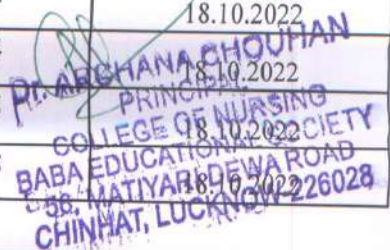 18.10.2022
18.10.2022
18.10.2022
18.10.2022
Dr. ARCHANA CHOUHAN
PRINCIPAL
COLLEGE OF NURSING
BABA EDUCATIONAL SOCIETY
56, MATIYARI DEWA ROAD
CHINHAT, LUCKNOW-226028